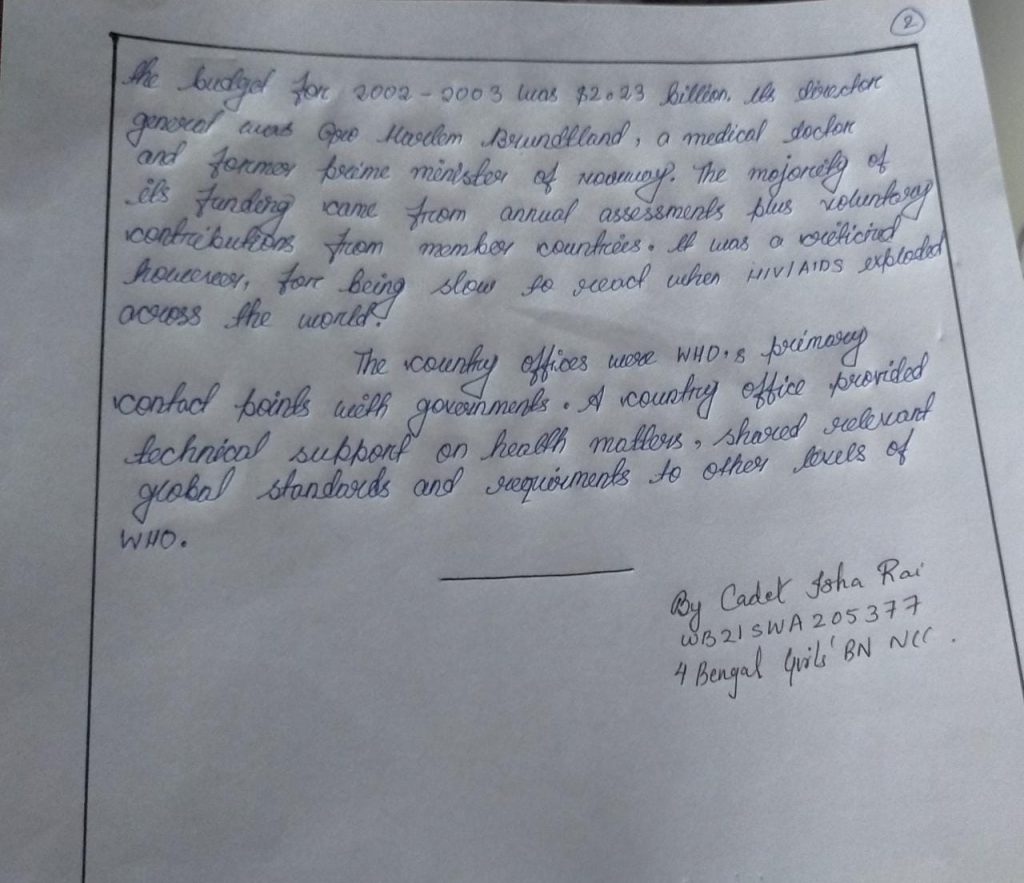 2
The budget for 2002-2003 was $2.23 billion. Its director
general was Gro Harlem Brundtland, a medical doctor
and former prime minister of norway. The majority of
its funding came from annual assessments plus voluntary
contributions from member countries. It was a criticized
however, for being slow to react when HIV/AIDS exploded
across the world.
The country offices were WHO's primary
contact points with governments. A country office provided
technical support on health matters, shared relevant
global standards and requirments to other levels of
WHO.
By Cadet Isha Rai
WB21SWA205377
4 Bengal Girls' BN NCC.